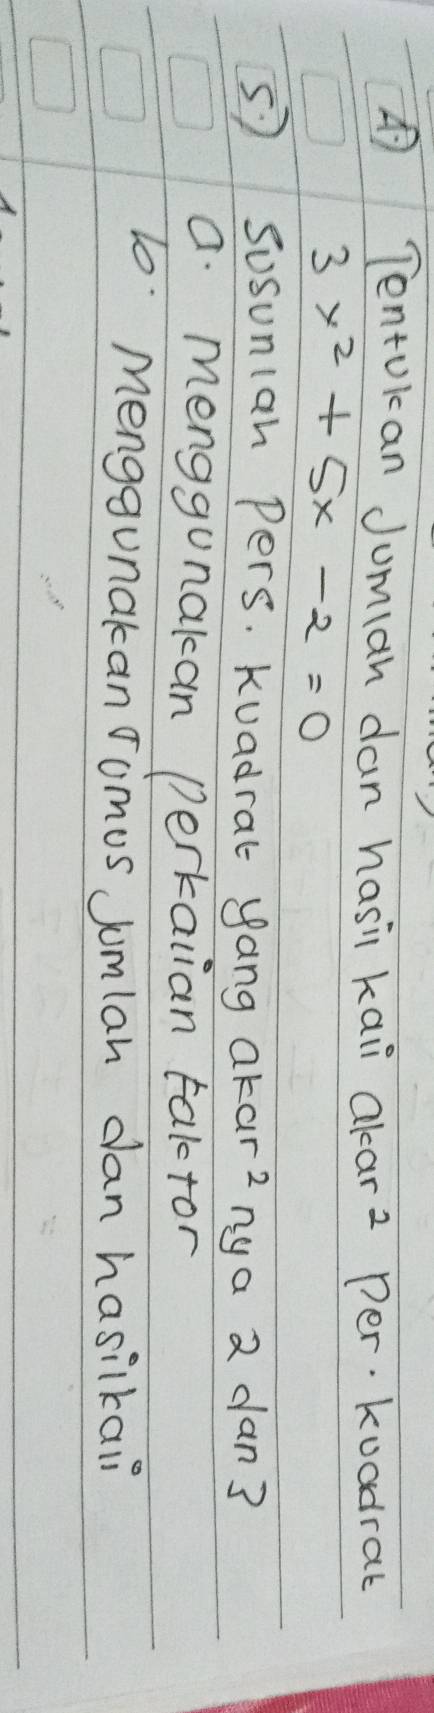 4.) Tentukan Jumlah dan hasil kali akar² Per. kuadrat
3x² + 5x - 2 = 0
5.) Susunlah Pers. kuadrat yang akar² nya 2 dan 3
a. Menggunakan Perkalian faktor
b. Menggunakan rumus Jumlah dan hasilkali